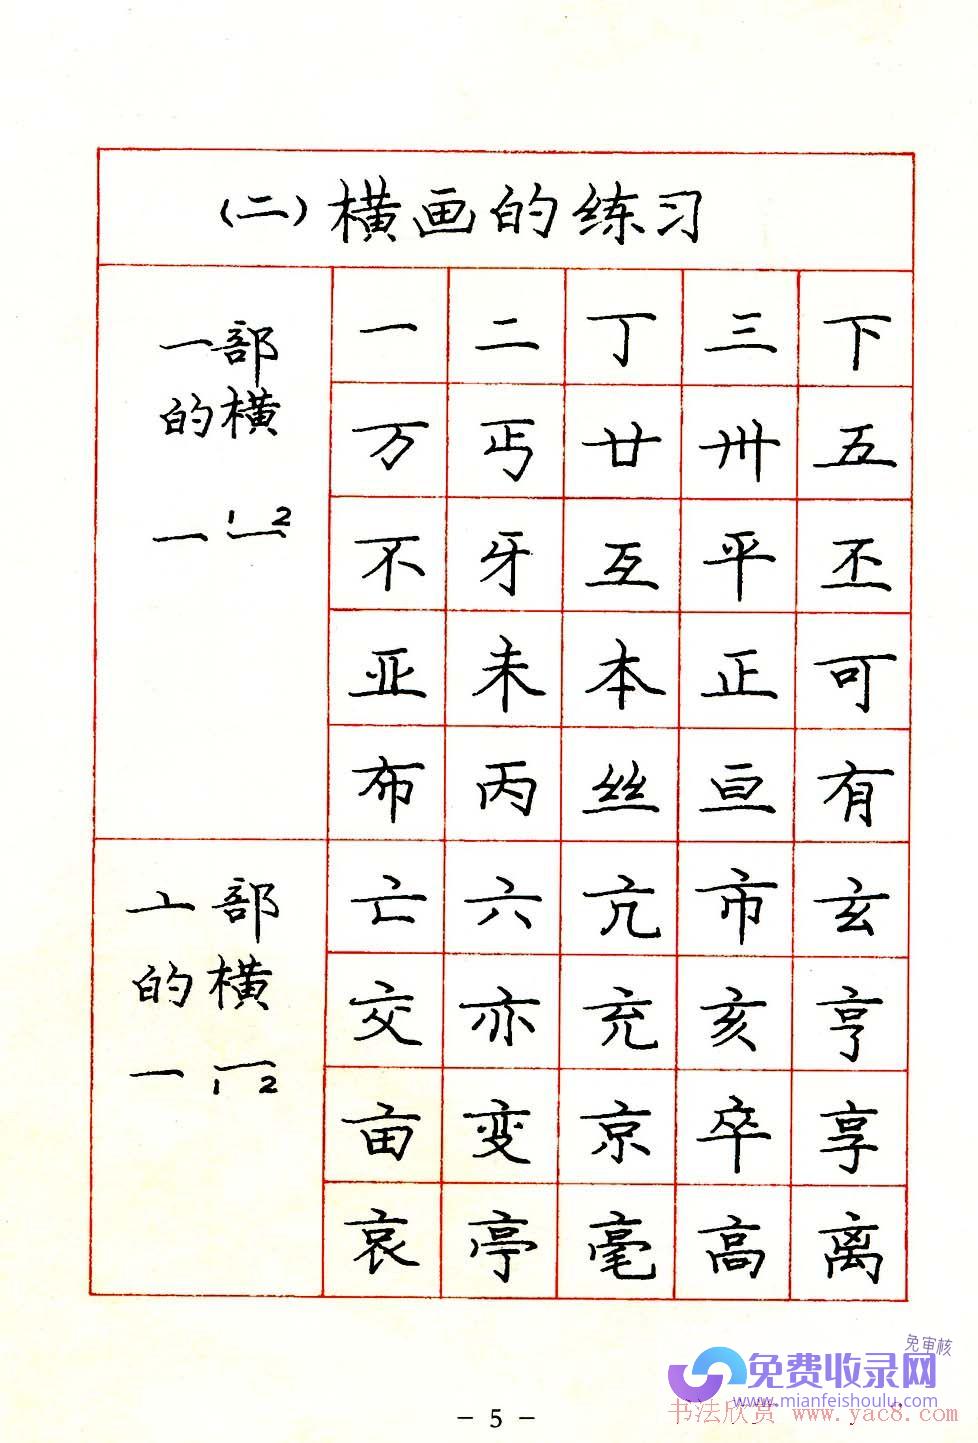 （二）横画的练习
一部
的横
一 一
1 2
一 二 丁 三 下
万 丐 廿 卅 五
不 牙 互 平 丕
亚 未 本 正 可
布 丙 丝 亘 有
亠部
的横
一 一
1 2
亡 六 亢 市 玄
交 亦 充 亥 亨
亩 变 京 卒 享
哀 亭 毫 高 离
免审核
免费收录网
www.mianfeishoulu.com
书法欣赏 www.yac8.com
- 5 -